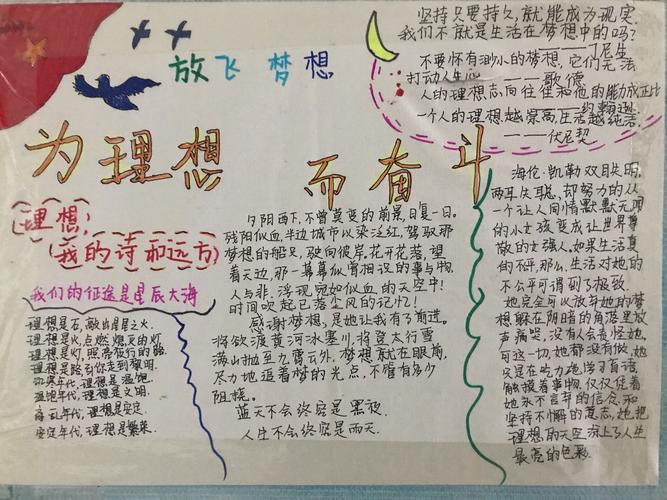 放飞梦想
坚持只要持久,就能成为现实.
我们不就是生活在梦想中的吗?
——丁尼生
不要怀有渺小的梦想,它们无法
打动人生心——歌德
人的理想志向往往和他的能力成正比
——约翰逊
一个人的理想越崇高,生活越纯洁
——伏尼契
为理想而奋斗
理想,
我的诗和远方
我们的征途是星辰大海
理想是石,敲出星星之火.
理想是火,点燃熄灭的灯.
理想是灯,照亮夜行的路.
理想是路,引你走到黎明.
饥寒年代,理想是温饱.
温饱年代,理想是文明.
离乱年代,理想是安定.
安定年代,理想是繁荣.
夕阳西下,不曾莫变的前景,日复一日。
残阳似血,半边城市以染泛红,驾驶那
梦想的船只,驶向彼岸,花开花落,望
着天边,那一幕幕似曾相识的事与物.
人与非,浮现宛如似血的天空中!
时间吹起已落尘风的记忆!
感谢梦想,是她让我有了前进。
将欲渡黄河冰塞川,将登太行雪
满山抛至九霄云外,梦想就在眼前,
尽力地追着梦的光点,不管有多少
阻挠。
蓝天不会终究是黑夜.
人生不会终究是雨天.
海伦·凯勒双目失明,
两耳失聪,却努力的从
一个让人同情默默无闻
的小女孩变成让世界尊
敬的女强人.如果生活真
的不平,那么,生活对她的
不公平可谓到了极致.
她完全可以放弃她的梦
想躲在阴暗的角落里放
声痛哭,没有人会责怪她,
可这一切她都没有做,她
只是吃力地学习盲语
触摸着事物,仅仅凭着
她永不言弃的信念和
坚持不懈的意志,她把
理想的天空涂上了人生
最亮的色彩.